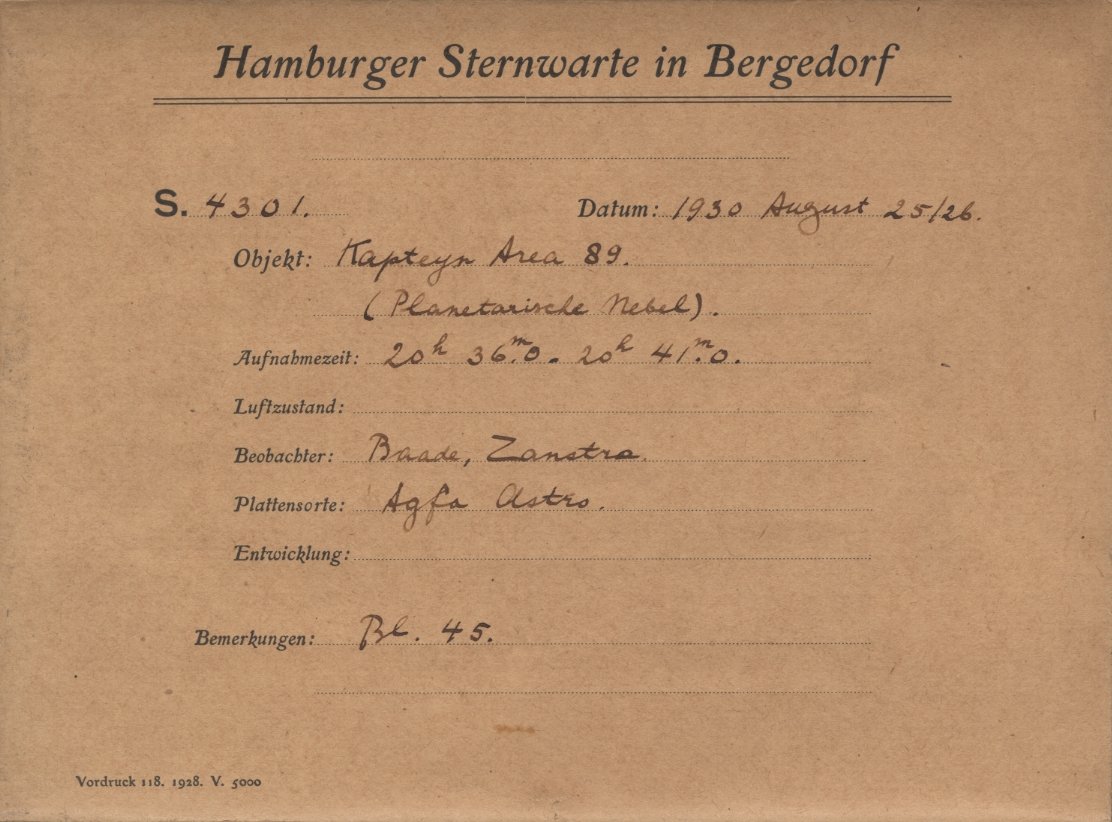 Hamburger Sternwarte in Bergedorf
S. 4301. Datum: 1930 August 25/26.
Objekt: Kapteyn Area 89.
(Planetarische Nebel).
Aufnahmezeit: 20h 36m.0 - 20h 41m.0.
Luftzustand:
Beobachter: Baade, Zanstra.
Plattensorte: Agfa Astro.
Entwicklung:
Bemerkungen: Bl. 45.
Vordruck 118. 1928. V. 5000